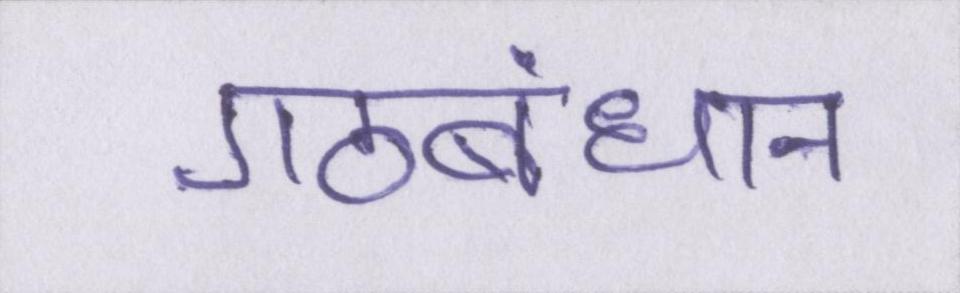 गठबंधान